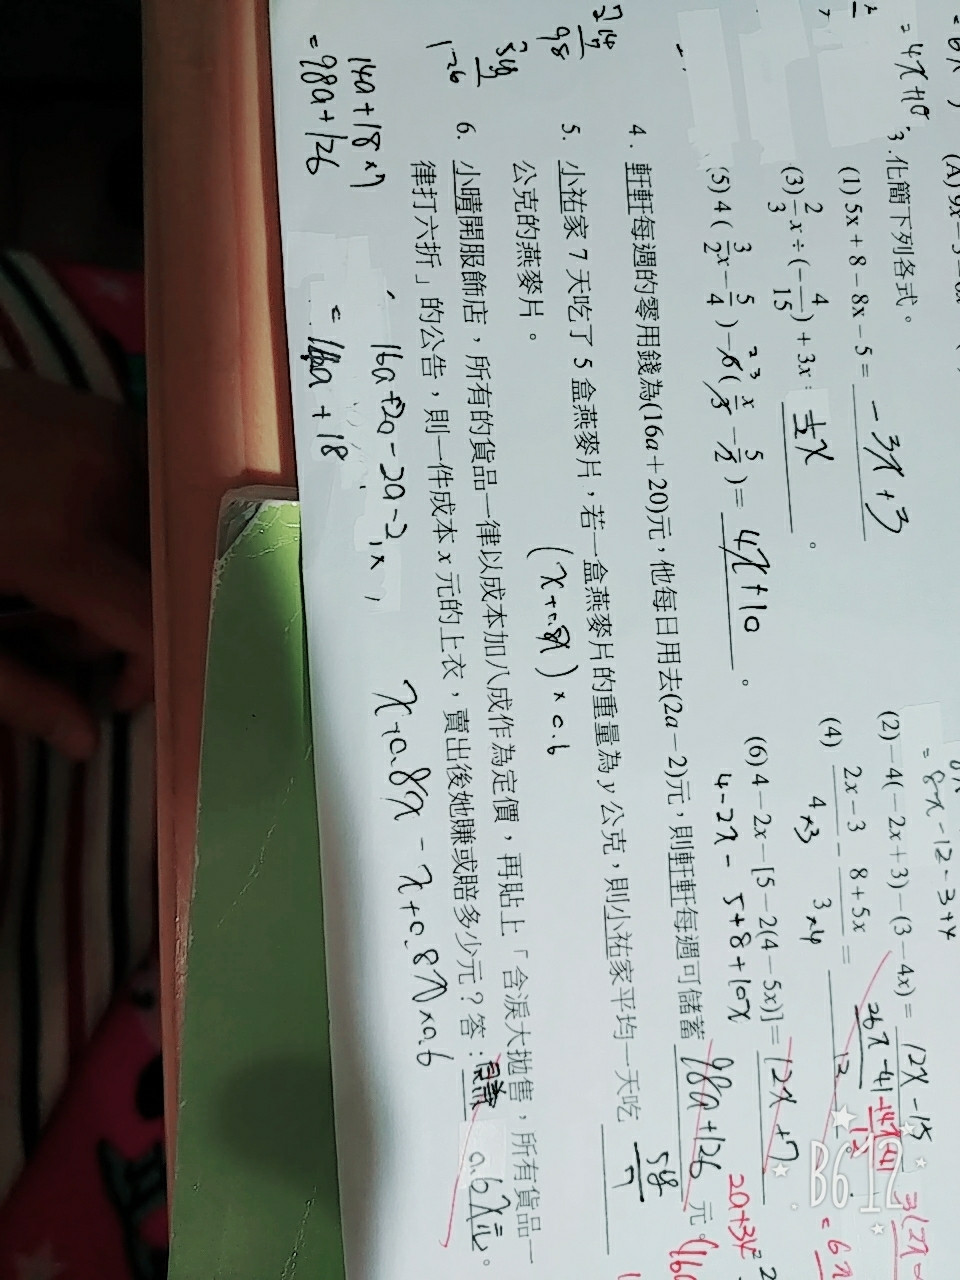 = 4x+10
3.化簡下列各式。
(1) 5x + 8 − 8x − 5 = −3x+3
= 8x−12−3+4
(2) −4(−2x + 3) − (3 − 4x) = 12x−15
(3) 2/3 x ÷ (− 4/15) + 3x = 1/2 x 。
(4) (2x − 3)/4 − (8 + 5x)/3 = 26x−41 / 12
×3 ×4
(5) 4( 3/2 x − 5/4 ) − 6( x/3 − 5/2 ) = 4x+10 。
(6) 4 − 2x − [5 − 2(4 − 5x)] = 12x+7
4−2x−5+8+10x
4. 軒軒每週的零用錢為(16a + 20)元，他每日用去(2a − 2)元，則軒軒每週可儲蓄 98a+126 元。
2a+34
5. 小祐家 7 天吃了 5 盒燕麥片，若一盒燕麥片的重量為 y 公克，則小祐家平均一天吃 5y/7
公克的燕麥片。
(x+0.8x)×0.6
6. 小晴開服飾店，所有的貨品一律以成本加八成作為定價，再貼上「含淚大拋售，所有貨品一
律打六折」的公告，則一件成本 x 元的上衣，賣出後她賺或賠多少元？答： 0.6x元。
16a+20−2a−2
x+0.8x − x+0.8x×0.6
14a+18×7
= 98a+126
= 14a+18
14
7
98
126
B612